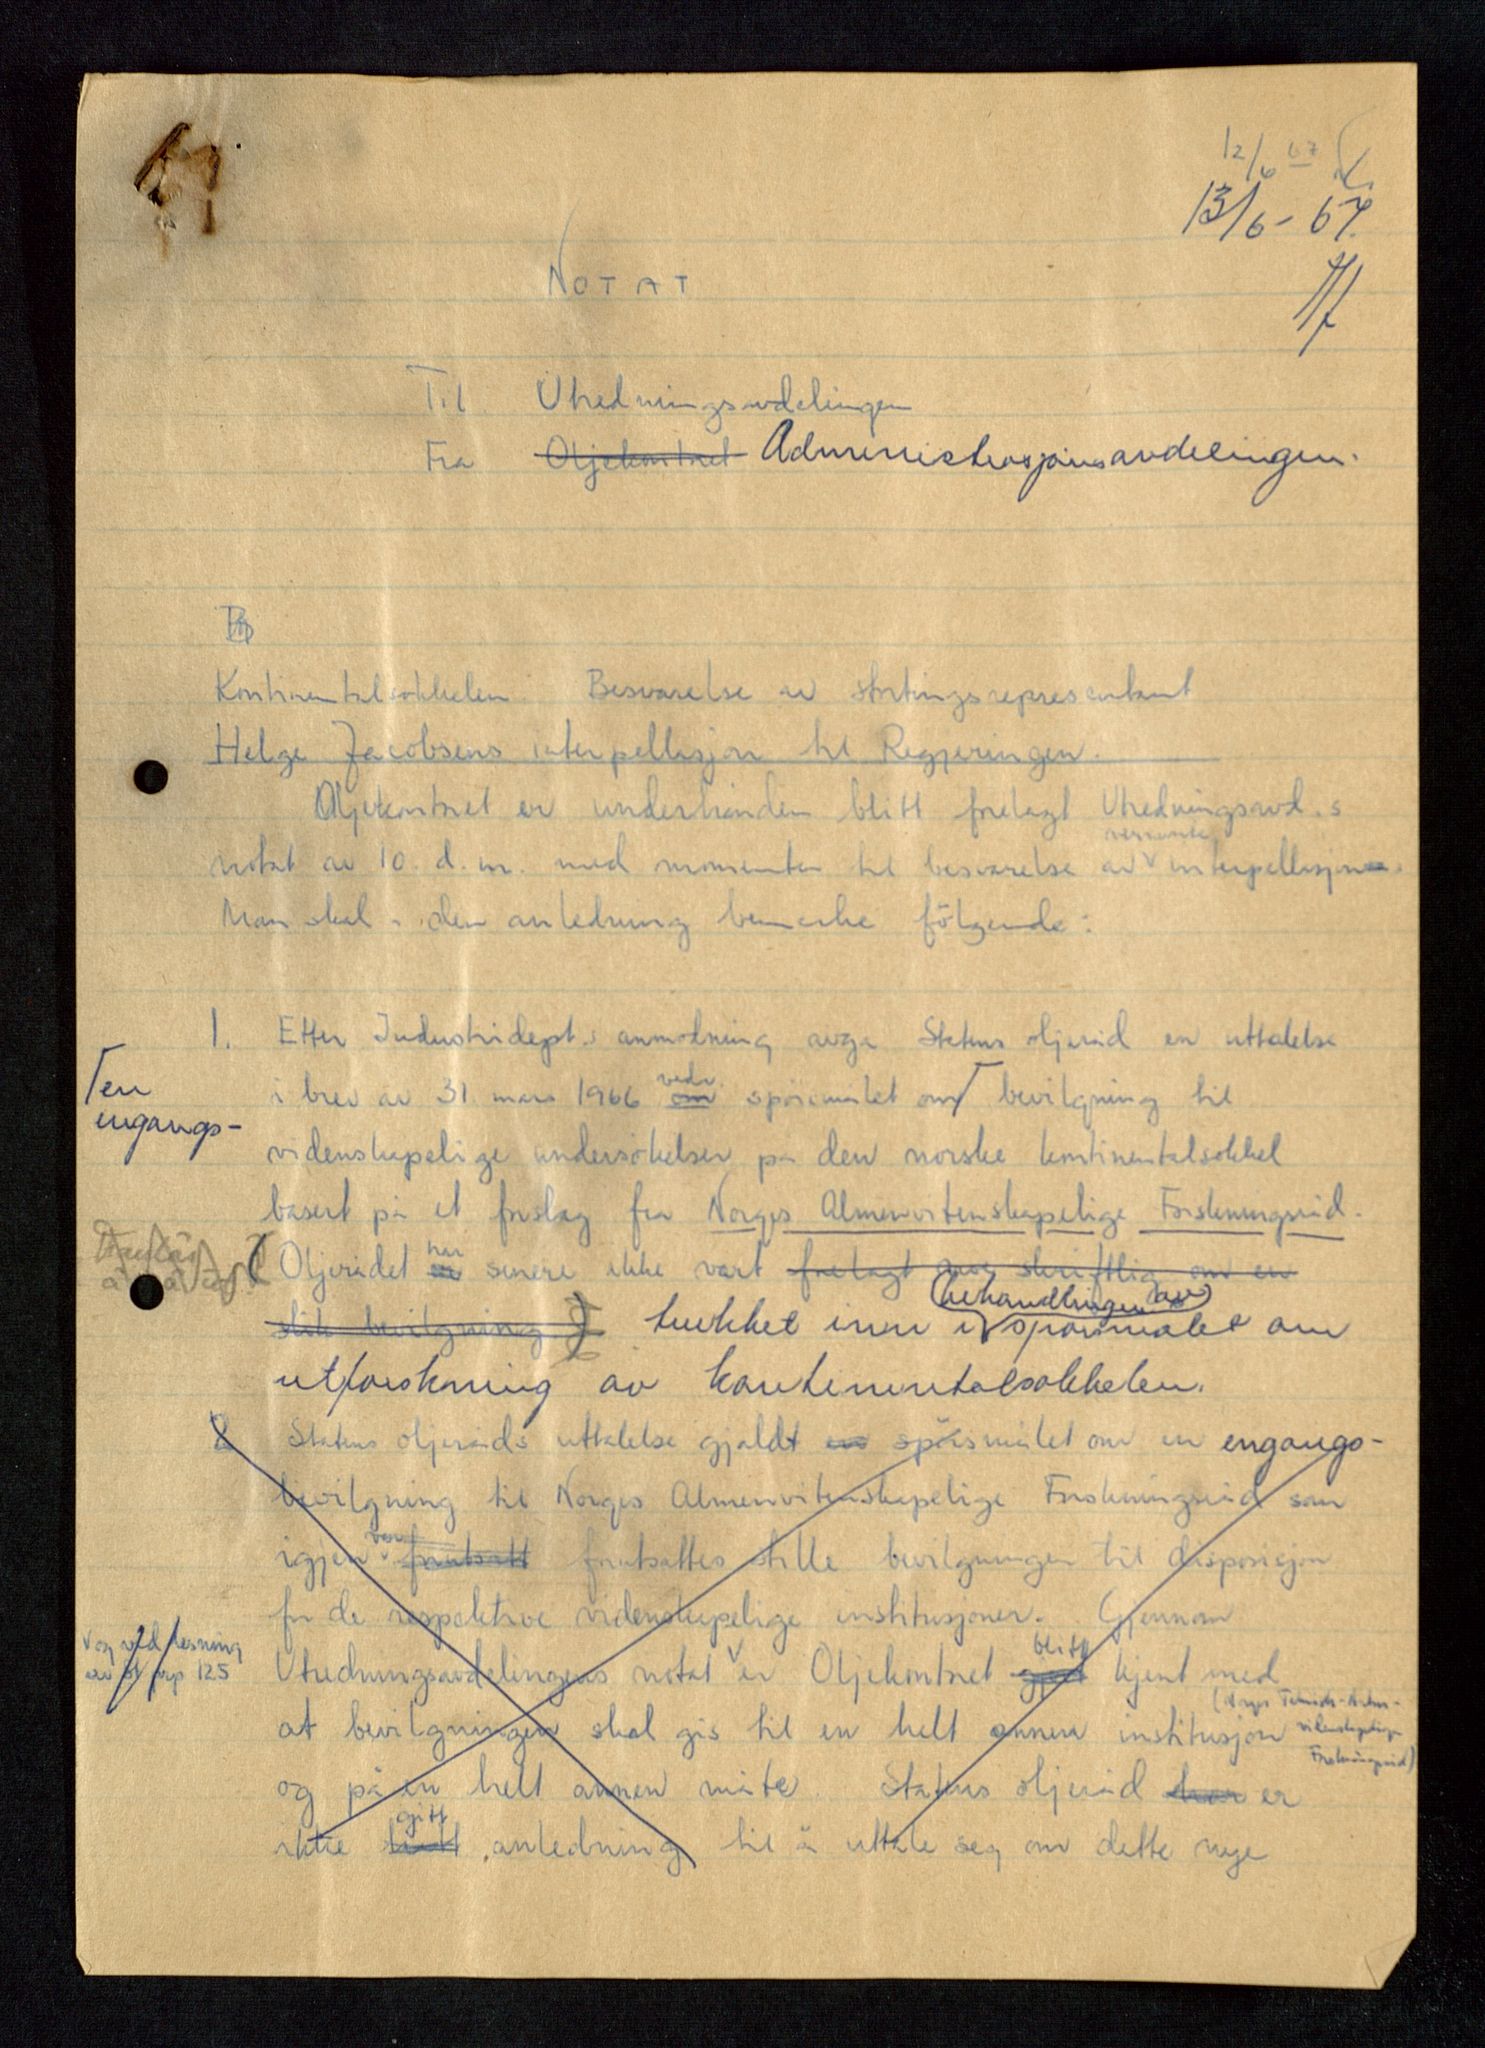 12/6 67
13/6 - 67.
NOTAT
Til Utredningsavdelingen
Fra Oljekontoret Administrasjonsavdelingen.
Kontinentalsokkelen. Besvarelse av stortingsrepresentant
Helge Jacobsens interpellasjon til Regjeringen.
Oljekontoret er underhånden blitt forelagt Utredningsavd.s
nevnte
notat av 10. d.m. med momenter til besvarelse av interpellasjon.
Man skal i den anledning bemerke følgende:
1. Etter Industridept.s anmodning avga Statens oljeråd en uttalelse
en
engangs-
vedr.
i brev av 31. mars 1966 om spörsmålet om bevilgning til
videnskapelige undersökelser på den norske kontinentalsokkel
basert på et forslag fra Norges Almenvitenskapelige Forskningsråd.
har
(Oljerådet er senere ikke vært forelagt noe skriftlig om en
behandlingen av
slik bevilgning) trukket inn i spörsmålet om
utforskning av kontinentalsokkelen.
2 Statens oljeråds uttalelse gjaldt en spörsmålet om en engangs-
bevilgning til Norges Almenvitenskapelige Forskningsråd som
var
igjen forutsatt forutsattes stille bevilgningen til disposisjon
for de respektive videnskapelige institusjoner. Gjennom
og ved lesning
av St prp 125
blitt
Utredningsavdelingens notat er Oljekontoret gjort kjent med
at bevilgningen skal gis til en helt annen institusjon
(Norges Teknisk-Natur-
videnskapelige
Forskningsråd)
og på en helt annen måte. Statens oljeråd har er
gitt
ikke hatt anledning til å uttale seg om dette nye